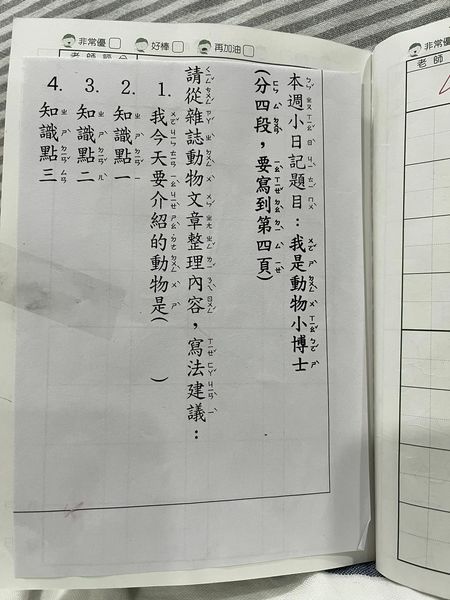 非常優
好棒
再加油
老師評分
非常優
老師
本週小日記題目：我是動物小博士
(分四段，要寫到第四頁)
請從雜誌動物文章整理內容，寫法建議：
1. 我今天要介紹的動物是( )
2. 知識點一
3. 知識點二
4. 知識點三